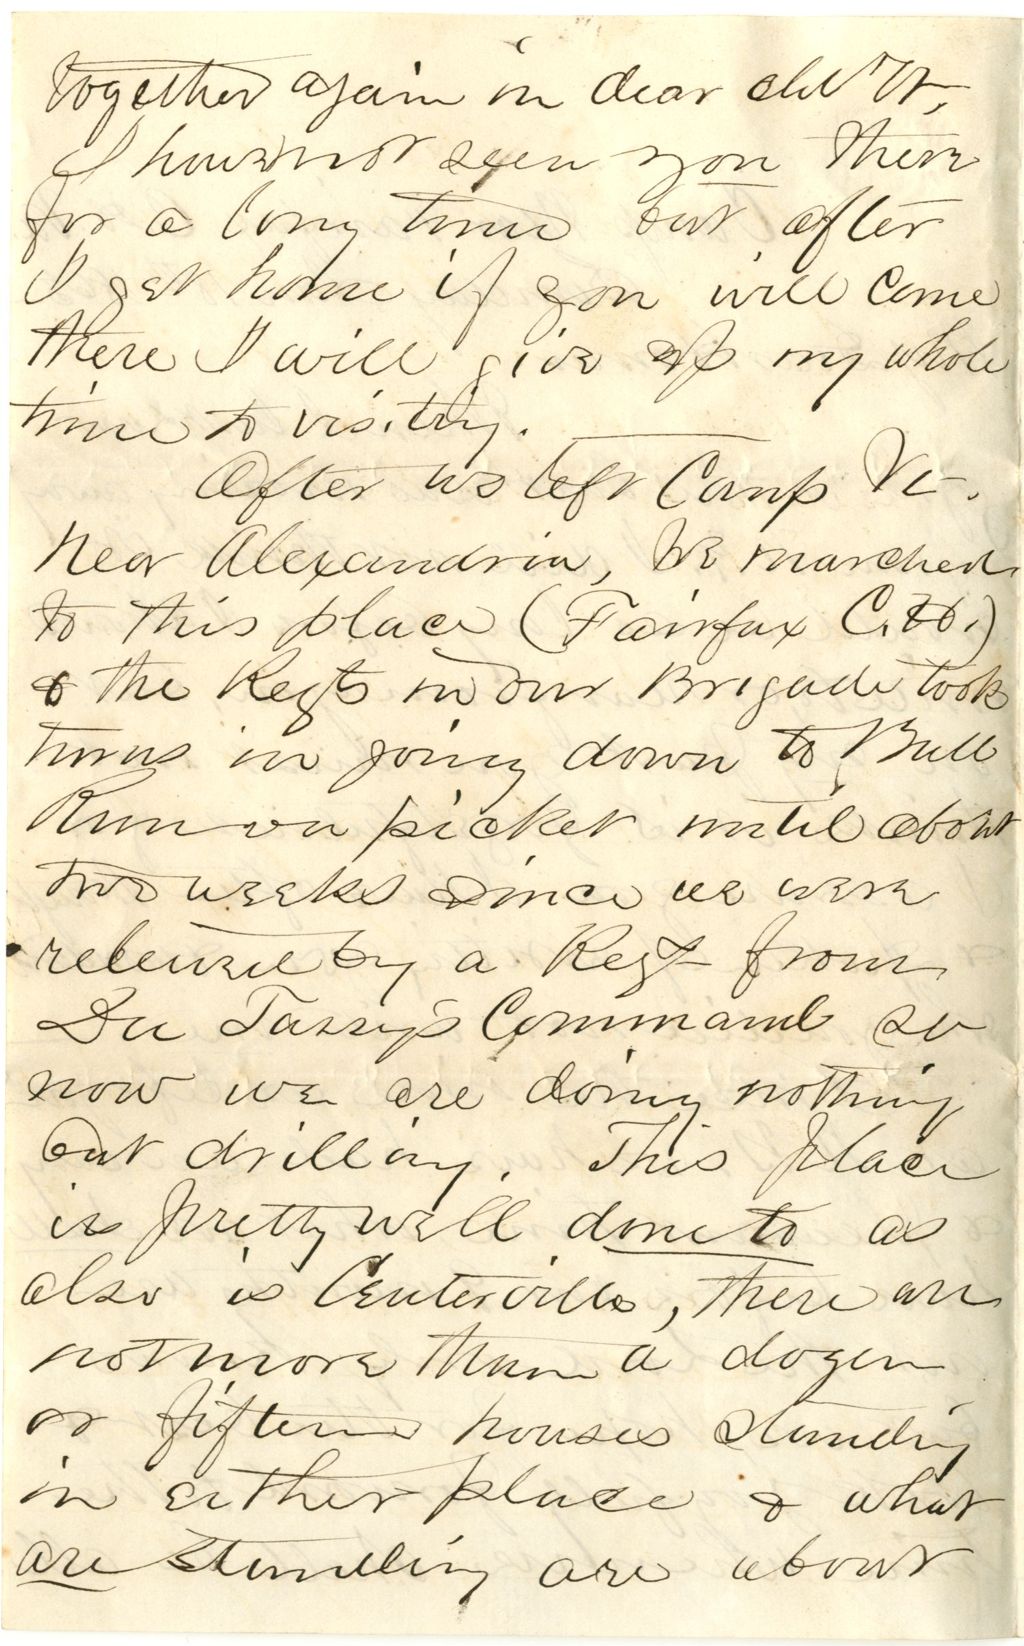 together again in dear old Vt,
I have not seen you there
for a long time but after
I get home if you will come
there I will give up my whole
time to visiting.
After we left Camp Vt.
near Alexandria, we marched
to this place (Fairfax C.H.)
& the Regts in our Brigade took
turns in going down to Bull
Run on picket until about
two weeks since we were
releived by a Regt from
Command so
now we are doing nothing
but drilling. This place
is pretty well done to as
also is Centerville, there are
not more than a dozen
or fifteen houses standing
in either place & what
are standing are about